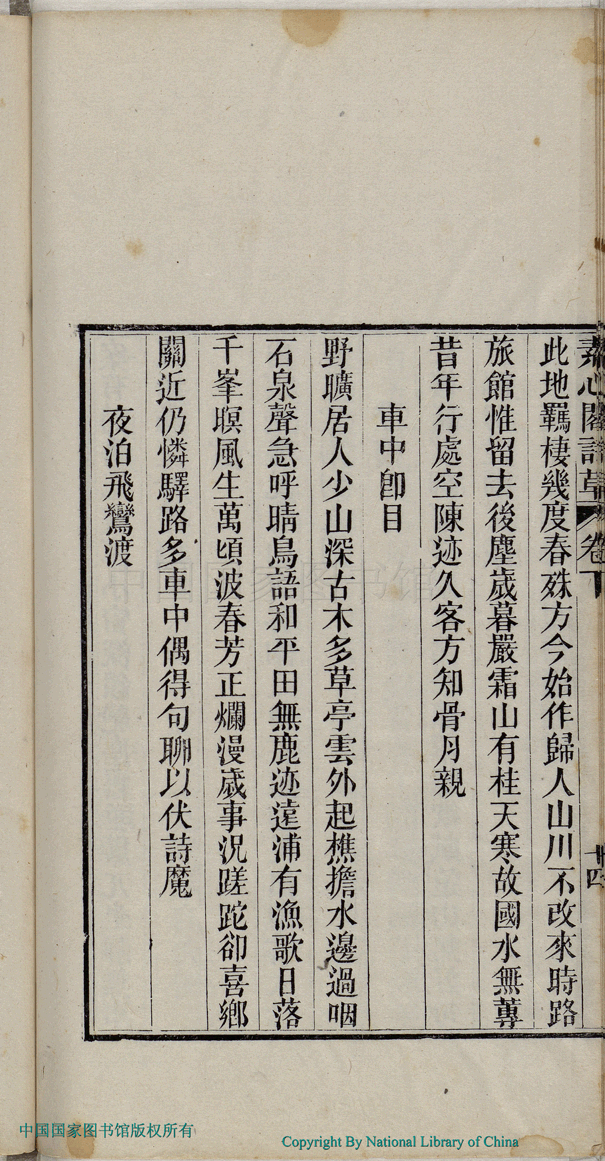 素心閣詩草 卷下 十四
此地羈棲幾度春殊方今始作歸人山川不改來時路
旅館惟留去後塵歲暮嚴霜山有桂天寒故國水無蓴
昔年行處空陳迹久客方知骨月親
車中卽目
野曠居人少山深古木多草亭雲外起樵擔水邊過咽
石泉聲急呼晴鳥語和平田無鹿迹遠浦有漁歌日落
千峯暝風生萬頃波春芳正爛漫歲事況蹉跎卻喜鄉
關近仍憐驛路多車中偶得句聊以伏詩魔
夜泊飛鸞渡
中国国家图书馆
中国国家图书馆版权所有
Copyright By National Library of China